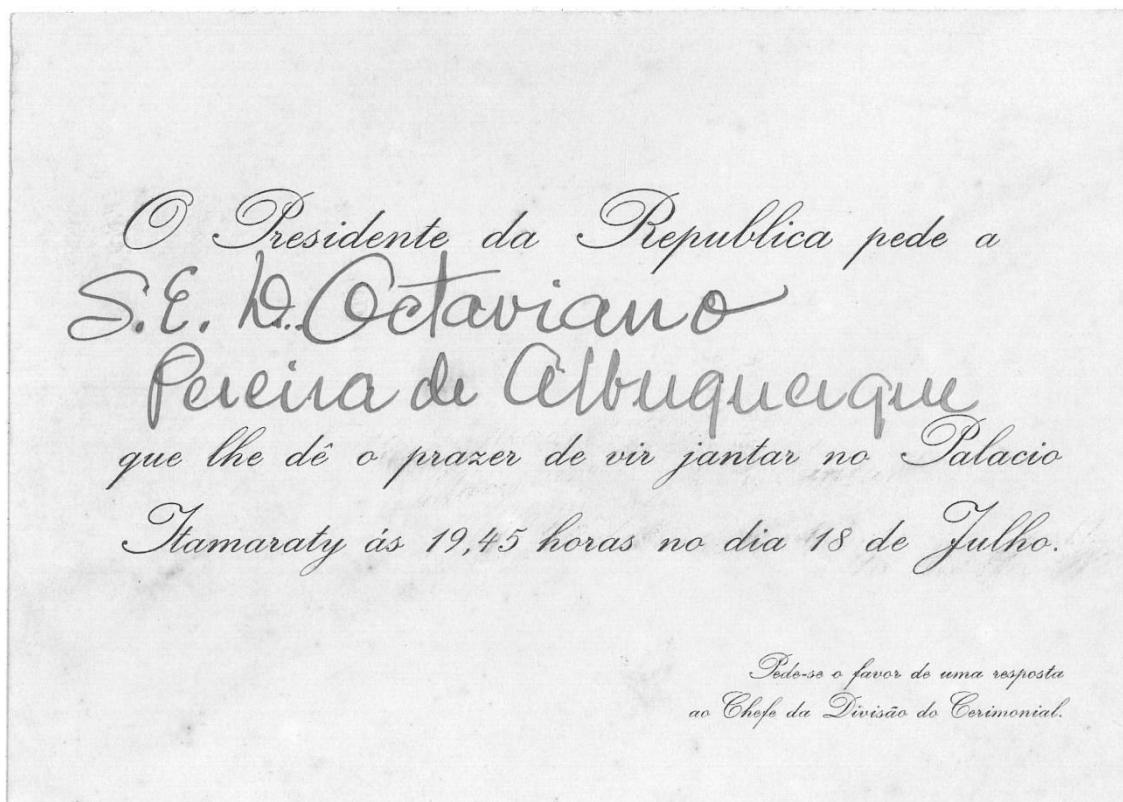 O Presidente da Republica pede a
S.E. D. Octaviano
Pereira de Albuquerque
que lhe dê o prazer de vir jantar no Palacio
Itamaraty ás 19,45 horas no dia 18 de Julho.
Pede-se o favor de uma resposta
ao Chefe da Divisão do Cerimonial.